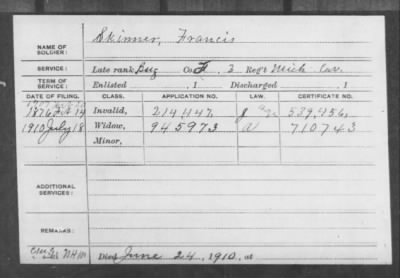 NAME OF SOLDIER: Skinner, Francis
SERVICE: Late rank Bug Co. F, 3 Reg't Mich Cav.
TERM OF SERVICE: Enlisted , 1 Discharged , 1
DATE OF FILING. CLASS. APPLICATION NO. LAW. CERTIFICATE NO.
1876 14 Invalid, 214447, 539,456,
1910 July 18 Widow, 945973 710743
Minor,
ADDITIONAL SERVICES:
REMARKS:
Died June 24, 1910, at